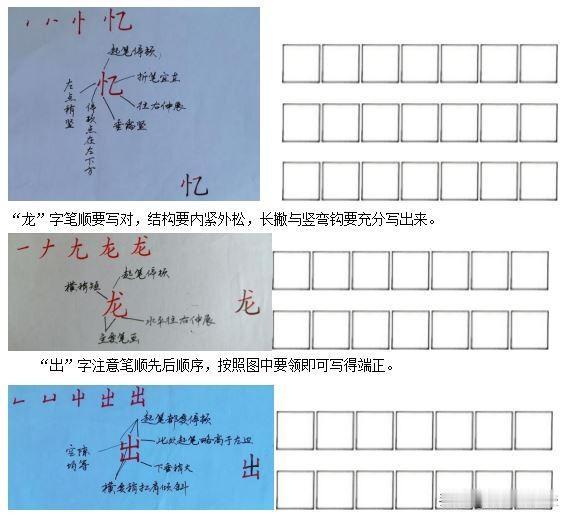 忆
起笔停顿
忆
折笔宜直
左点稍竖
停顿点在左下方
往右伸展
垂露竖
忆
“龙”字笔顺要写对，结构要内紧外松，长撇与竖弯钩要充分写出来。
一 ナ 尢 龙 龙
起笔停顿
横稍短
龙
龙
水平往右伸展
主要笔画
“出”字注意笔顺先后顺序，按照图中要领即可写得端正。
凵 屮 出 出
起笔都要停顿
空隙均等
出
此处起笔略高于左边
下要稍大
出
横要稍扛肩倾斜